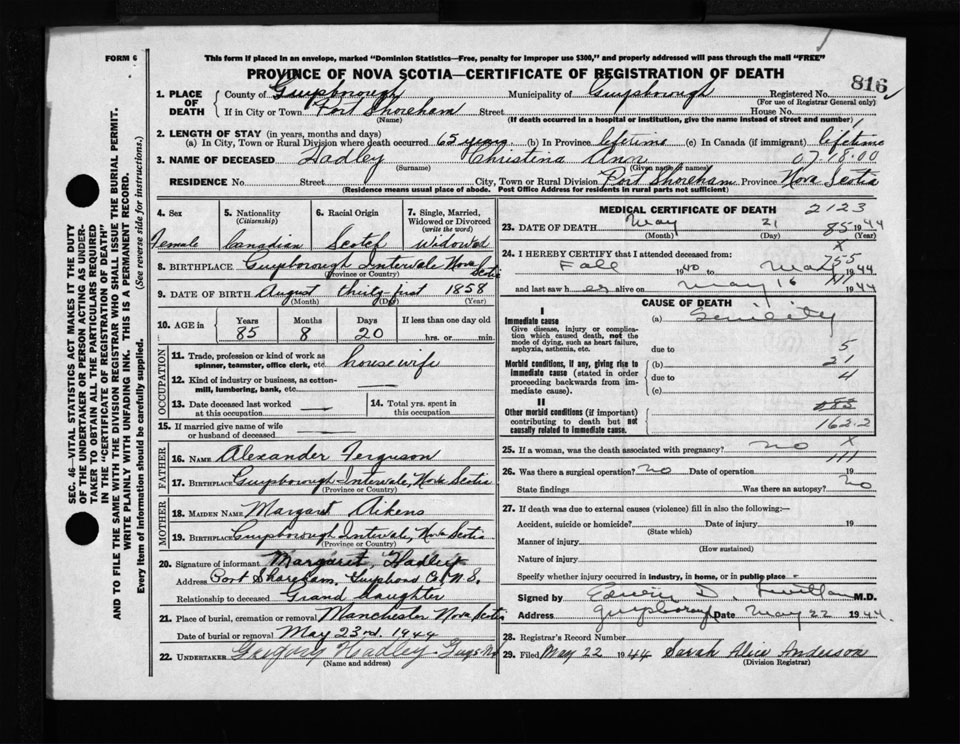 FORM 6
This form if placed in an envelope, marked "Dominion Statistics—Free, penalty for improper use $300," and properly addressed will pass through the mail "FREE"
PROVINCE OF NOVA SCOTIA—CERTIFICATE OF REGISTRATION OF DEATH
816
SEC. 46—VITAL STATISTICS ACT MAKES IT THE DUTY
OF THE UNDERTAKER OR PERSON ACTING AS UNDER-
TAKER TO OBTAIN ALL THE PARTICULARS REQUIRED
IN THE "CERTIFICATE OF REGISTRATION OF DEATH"
AND TO FILE THE SAME WITH THE DIVISION REGISTRAR WHO SHALL ISSUE THE BURIAL PERMIT.
WRITE PLAINLY WITH UNFADING INK. THIS IS A PERMANENT RECORD.
Every item of information should be carefully supplied. (See reverse side for instructions.)
1. PLACE OF DEATH County of Guysborough Municipality of Guysborough Registered No.
(For use of Registrar General only)
If in City or Town Port Shoreham Street House No.
(Name) (If death occurred in a hospital or institution, give the name instead of street and number)
2. LENGTH OF STAY (in years, months and days)
(a) In City, Town or Rural Division where death occurred 65 years (b) In Province lifetime (c) In Canada (if immigrant) lifetime
3. NAME OF DECEASED Hadley Christina Ann 07.18.00
(Surname) (Given name or names)
RESIDENCE No. Street City, Town or Rural Division Port Shoreham Province Nova Scotia
(Residence means usual place of abode. Post Office Address for residents in rural parts not sufficient)
4. Sex 5. Nationality (Citizenship) 6. Racial Origin 7. Single, Married, Widowed or Divorced (write the word)
Female Canadian Scotch Widowed
8. BIRTHPLACE Guysborough Intervale Nova Scotia
(Province or Country)
9. DATE OF BIRTH August thirty-first 1858
(Month) (Day) (Year)
10. AGE in Years Months Days If less than one day old
85 8 20 hrs. or min.
OCCUPATION
11. Trade, profession or kind of work as spinner, teamster, office clerk, etc. housewife
12. Kind of industry or business, as cotton-mill, lumbering, bank, etc.
13. Date deceased last worked at this occupation
14. Total yrs. spent in this occupation
15. If married give name of wife or husband of deceased
FATHER
16. NAME Alexander Ferguson
17. BIRTHPLACE Guysborough Intervale, Nova Scotia
(Province or Country)
MOTHER
18. MAIDEN NAME Margaret Aikens
19. BIRTHPLACE Guysborough Intervale, Nova Scotia
(Province or Country)
20. Signature of informant Margaret Hadley
Address Port Shoreham, Guysboro Co. N.S.
Relationship to deceased Grand daughter
21. Place of burial, cremation or removal Manchester Nova Scotia
Date of burial or removal May 23rd. 1944
22. UNDERTAKER Gregory Hadley
(Name and address)
MEDICAL CERTIFICATE OF DEATH 2123
23. DATE OF DEATH May 21 85 1944
(Month) (Day) (Year)
24. I HEREBY CERTIFY that I attended deceased from: X
Fall 1940 to May 1944 755
and last saw her alive on May 16 1944
CAUSE OF DEATH
I
Immediate cause (a) Senility
Give disease, injury or complication which caused death, not the mode of dying, such as heart failure, asphyxia, asthenia, etc.
due to 5
Morbid conditions, if any, giving rise to immediate cause (stated in order proceeding backwards from immediate cause). (b) 21
due to 4
(c)
II
Other morbid conditions (if important) contributing to death but not causally related to immediate cause.
162.2
25. If a woman, was the death associated with pregnancy? no X
26. Was there a surgical operation? no Date of operation 19
State findings Was there an autopsy? no
27. If death was due to external causes (violence) fill in also the following:—
Accident, suicide or homicide? Date of injury 19
(State which)
Manner of injury
(How sustained)
Nature of injury
Specify whether injury occurred in industry, in home, or in public place
Signed by Edwin D. M.D.
Address Guysborough Date May 22 1944
28. Registrar's Record Number
29. Filed May 22 1944 Sarah Alice Anderson
(Division Registrar)